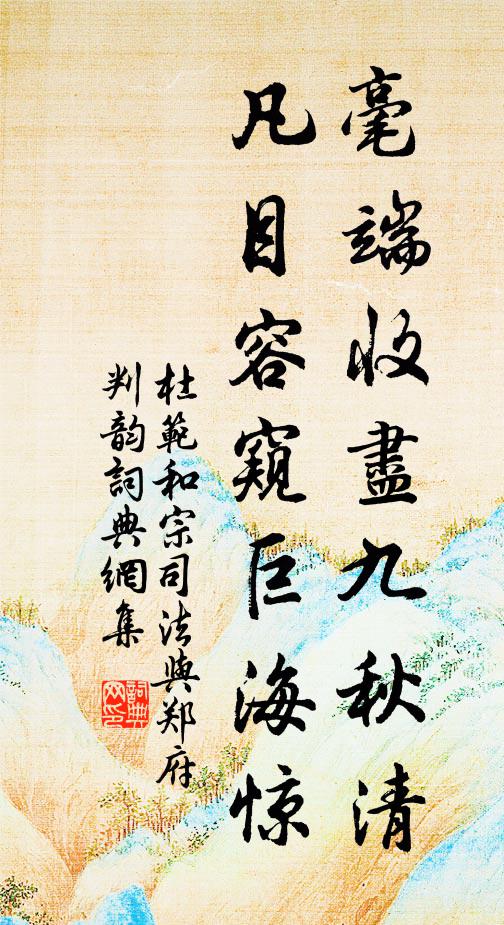 毫端收盡九秋清
凡目容窺巨海惊
杜範和宗司法與郑府
判韵詞典網集
詞典